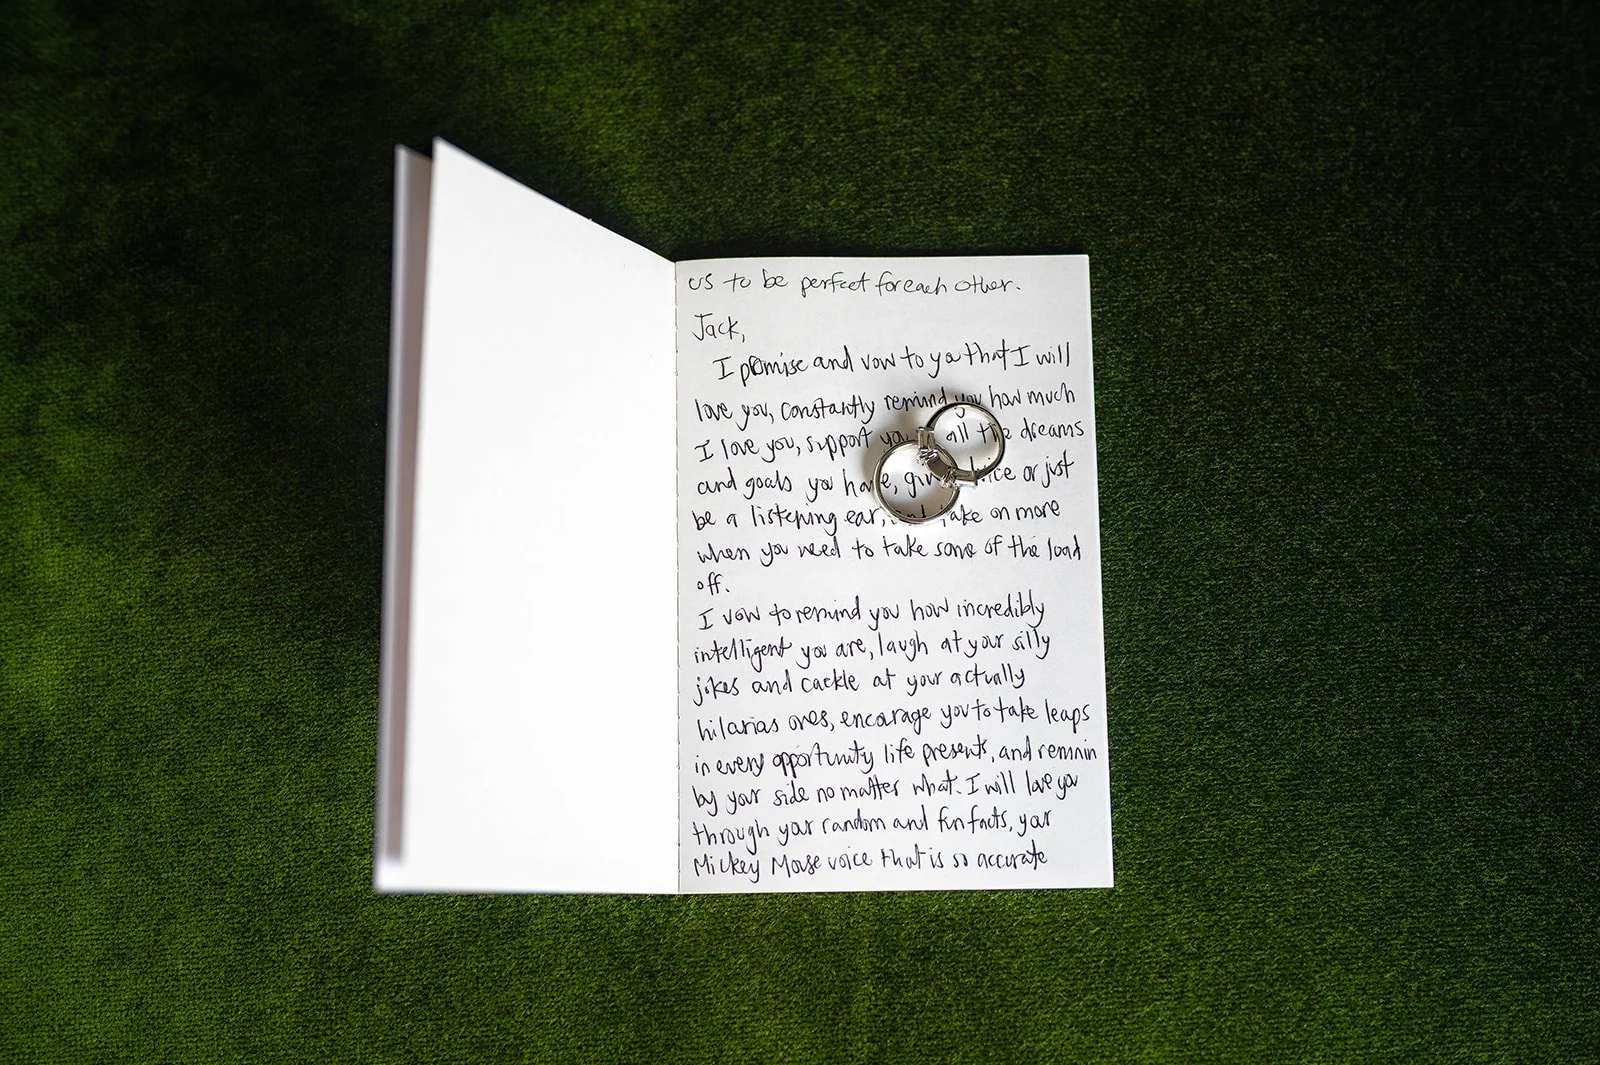 us to be perfect for each other.
Jack,
I promise and vow to you that I will
love you, constantly remind you how much
I love you, support you all the dreams
and goals you have, give or just
be a listening ear, and take on more
when you need to take some of the load
off.
I vow to remind you how incredibly
intelligent you are, laugh at your silly
jokes and cackle at your actually
hilarious ones, encourage you to take leaps
in every opportunity life presents, and remain
by your side no matter what. I will love you
through your random and fun facts, your
Mickey Mouse voice that is so accurate